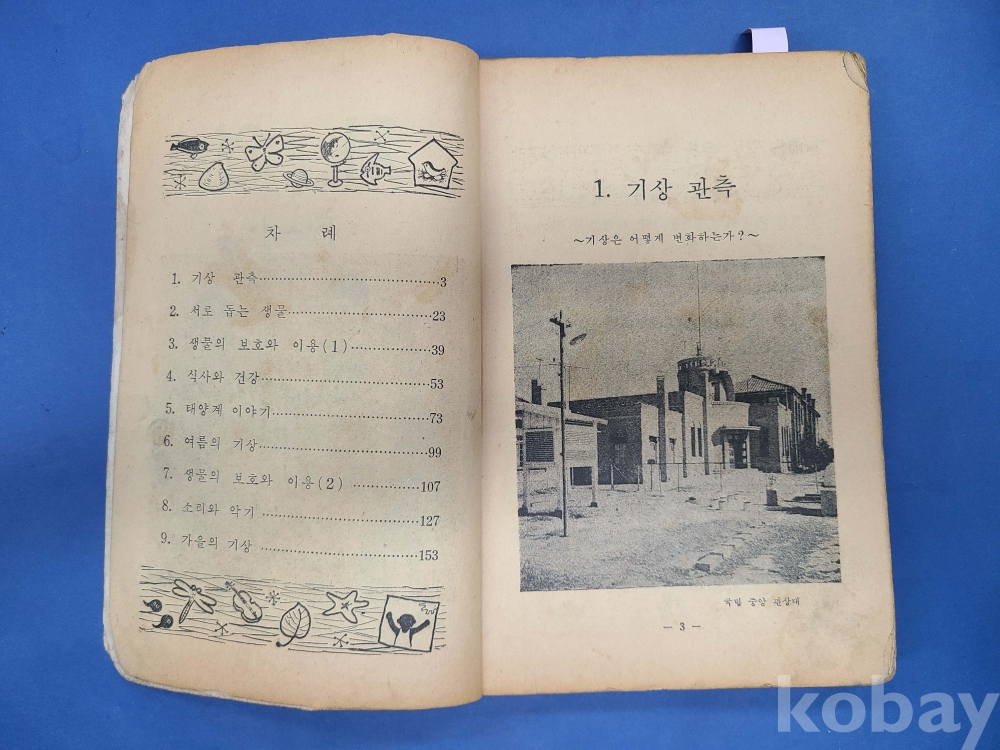 차 례
1. 기상 관측 3
2. 서로 돕는 생물 23
3. 생물의 보호와 이용(1) 39
4. 식사와 건강 53
5. 태양계 이야기 73
6. 여름의 기상 99
7. 생물의 보호와 이용(2) 107
8. 소리와 악기 127
9. 가을의 기상 153
1. 기상 관측
~기상은 어떻게 변화하는가?~
국립 중앙 관상대
— 3 —
kobay